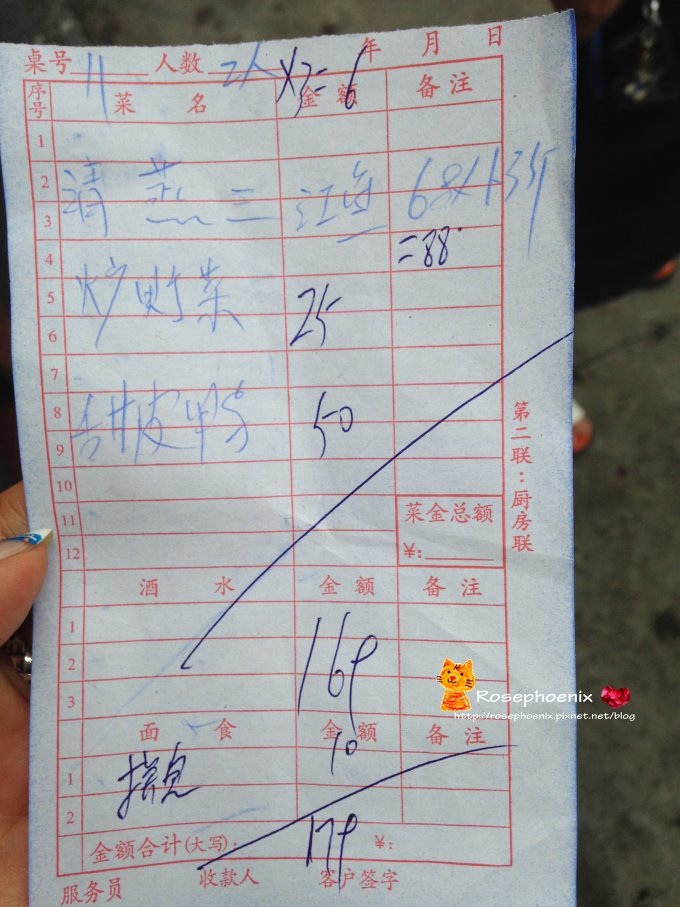 桌号 11 人数 2人 ×3=6 年 月 日
序号 菜 名 金 额 备 注
1
2
清蒸三江鱼 68×1.3斤
3
4
=88.
5
炒时菜 25
6
7
8
甜皮鸭 50
9
10
11
菜金总额
¥:
12
第二联:厨房联
酒 水 金 额 备 注
1
2
3
169
面 食 金 额 备 注
10
1
2
金额合计(大写): 179 ¥:
服务员 收款人 客户签字
Rosephoenix
http://rosephoenix.pixnet.net/blog